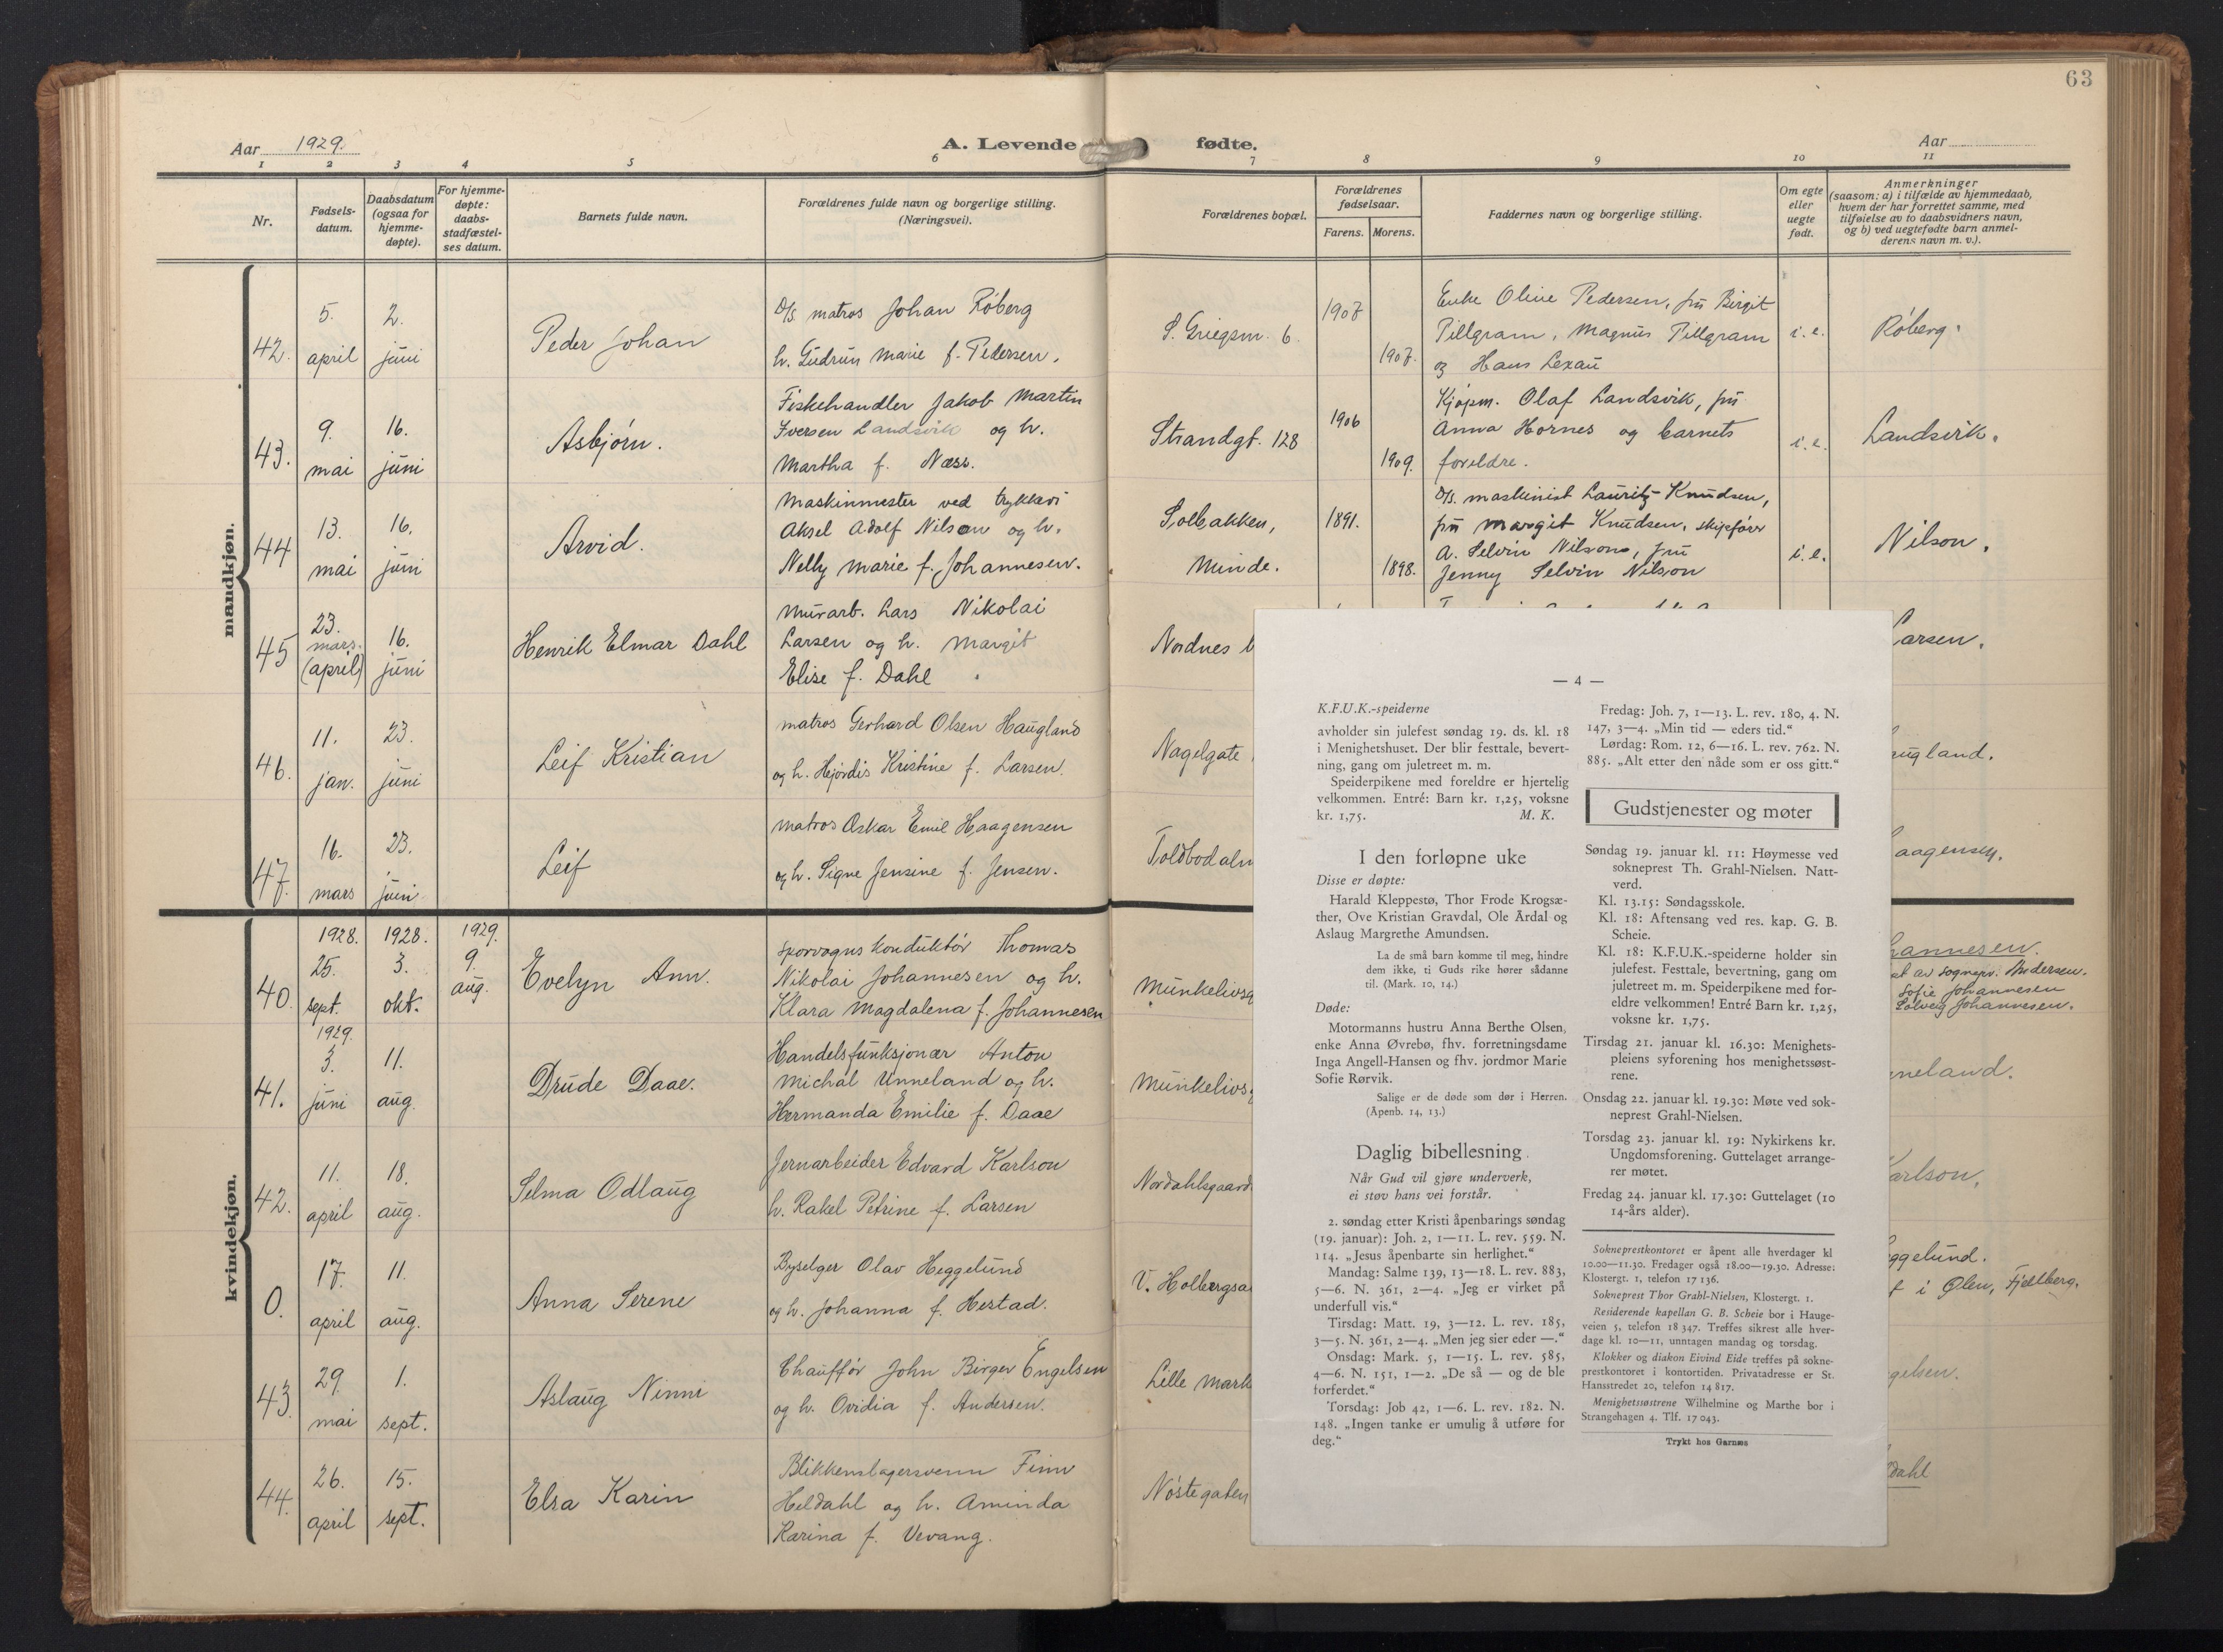 63
Aar 1929.
A. Levende fødte.
Aar
1 2 3 4 5 6 7 8 9 10 11
Nr.
Fødsels-
datum.
Daabsdatum
(ogsaa for
hjemme-
døpte).
For hjemme-
døpte:
daabs-
stadfæstel-
ses datum.
Barnets fulde navn.
Forældrenes fulde navn og borgerlige stilling.
(Næringsvei).
Forældrenes bopæl.
Forældrenes
fødselsaar.
Farens. Morens.
Faddernes navn og borgerlige stilling.
Om egte
eller
uegte
født.
Anmerkninger
(saasom: a) i tilfælde av hjemmedaab,
hvem der har forrettet samme, med
tilføielse av to daabsvidners navn,
og b) ved uegtefødte barn anmel-
derens navn m. v.).
mandkjøn.
42.
5.
april
2.
juni
Peder Johan
D/S. matros Johan Røberg
h. Gudrun Marie f. Pedersen.
S. Griegsm. 6.
1907
1907.
Enke Oline Pedersen, fru Birgit
Pillgram, Magnus Pillgram
og Hans Lexau
i. e.
Røberg.
43.
9.
mai
16.
juni
Asbjørn.
Fiskehandler Jakob Martin
Iversen Landsvik og h.
Martha f. Næss.
Strandgt. 128
1906
1909.
Kjøpm. Olaf Landsvik, fru
Anna Hornes og barnets
foreldre.
i. e.
Landsvik.
44
13.
mai
16.
juni
Arvid.
Maskinmester ved trykkeri
Aksel Adolf Nilson og h.
Nelly Marie f. Johannesen.
Solbakken,
Minde.
1891.
1898.
D/S. maskinist Lauritz Knudsen,
fru Margit Knudsen, skipsfører
A. Selvin Nilson, fru
Jenny Selvin Nilson
i. e.
Nilson.
45
23.
mars.
(april)
16.
juni
Henrik Elmar Dahl
Murarb. Lars Nikolai
Larsen og h. Margit
Elise f. Dahl
Nordnes
Larsen.
46.
11.
jan.
23.
juni
Leif Kristian
matros Gerhard Olsen Haugland
og h. Hjørdis Kristine f. Larsen.
Nagelgate
ugland.
47.
16.
mars
23.
juni
Leif
matros Oskar Emil Haagensen
og h. Signe Jensine f. Jensen.
Toldbodalm
aagensen.
kvindekjøn.
40.
1928.
25.
sept.
1928.
3.
okt.
1929.
9.
aug.
Evelyn Ann.
Sporvognskonduktør Thomas
Nikolai Johannesen og h.
Klara Magdalena f. Johannesen
Munkelivsg
hannesen.
av sognepr. Andersen.
Sofie Johannesen
Solveig Johannesen.
41.
1929.
3.
juni
11.
aug.
Drude Daae.
Handelsfunksjonær Anton
Michal Unneland og h.
Hermanda Emilie f. Daae
Munkelivsg
neland.
42.
11.
april
18.
aug.
Selma Odlaug
Jernarbeider Edvard Karlson
h. Rakel Petrine f. Larsen
Nordahlsgaard
Karlson.
0.
17.
april
11.
aug.
Anna Serene
Byselger Olav Heggelund
og h. Johanna f. Hestad.
V. Holbergsa
ggelund.
i Ølen, Fjellberg.
43
29.
mai
1.
sept.
Aslaug Ninni
Chauffør John Birger Engelsen
og h. Ovidia f. Andersen.
Lille Mark
gelsen.
44.
26.
april
15.
sept.
Elsa Karin
Blikkenslagersvenn Finn
Heldahl og h. Aminda
Karina f. Vevang.
Nøstegaten
dahl
— 4 —
K.F.U.K.-speiderne
avholder sin julefest søndag 19. ds. kl. 18
i Menighetshuset. Der blir festtale, bevert-
ning, gang om juletreet m. m.
Speiderpikene med foreldre er hjertelig
velkommen. Entré: Barn kr. 1,25, voksne
kr. 1,75. M. K.
I den forløpne uke
Disse er døpte:
Harald Kleppestø, Thor Frode Krogsæ-
ther, Ove Kristian Gravdal, Ole Årdal og
Aslaug Margrethe Amundsen.
La de små barn komme til meg, hindre
dem ikke, ti Guds rike hører sådanne
til. (Mark. 10, 14.)
Døde:
Motormanns hustru Anna Berthe Olsen,
enke Anna Øvrebø, fhv. forretningsdame
Inga Angell-Hansen og fhv. jordmor Marie
Sofie Rørvik.
Salige er de døde som dør i Herren.
(Åpenb. 14, 13.)
Daglig bibellesning.
Når Gud vil gjøre underverk,
ei støv hans vei forstår.
2. søndag etter Kristi åpenbarings søndag
(19. januar): Joh. 2, 1—11. L. rev. 559. N.
114. „Jesus åpenbarte sin herlighet.“
Mandag: Salme 139, 13—18. L. rev. 883,
5—6. N. 361, 2—4. „Jeg er virket på
underfull vis.“
Tirsdag: Matt. 19, 3—12. L. rev. 185,
3—5. N. 361, 2—4. „Men jeg sier eder —.“
Onsdag: Mark. 5, 1—15. L. rev. 585,
4—6. N. 151, 1—2. „De så — og de ble
forferdet.“
Torsdag: Job 42, 1—6. L. rev. 182. N.
148. „Ingen tanke er umulig å utføre for
deg.“
Fredag: Joh. 7, 1—13. L. rev. 180, 4. N.
147, 3—4. „Min tid — eders tid.“
Lørdag: Rom. 12, 6—16. L. rev. 762. N.
885. „Alt etter den nåde som er oss gitt.“
Gudstjenester og møter
Søndag 19. januar kl. 11: Høymesse ved
sokneprest Th. Grahl-Nielsen. Natt-
verd.
Kl. 13.15: Søndagsskole.
Kl. 18: Aftensang ved res. kap. G. B.
Scheie.
Kl. 18: K.F.U.K.-speiderne holder sin
julefest. Festtale, bevertning, gang om
juletreet m. m. Speiderpikene med for-
eldre velkommen! Entré Barn kr. 1,25,
voksne kr. 1,75.
Tirsdag 21. januar kl. 16.30: Menighets-
pleiens syforening hos menighetssøst-
rene.
Onsdag 22. januar kl. 19.30: Møte ved sok-
neprest Grahl-Nielsen.
Torsdag 23. januar kl. 19: Nykirkens kr.
Ungdomsforening. Guttelaget arrange-
rer møtet.
Fredag 24. januar kl. 17.30: Guttelaget (10
14-års alder).
Sokneprestkontoret er åpent alle hverdager kl
10.00—11.30. Fredager også 18.00—19.30. Adresse:
Klostergt. 1, telefon 17 136.
Sokneprest Thor Grahl-Nielsen, Klostergt. 1.
Residerende kapellan G. B. Scheie bor i Hauge-
veien 5, telefon 18 347. Treffes sikrest alle hver-
dage kl. 10—11, unntagen mandag og torsdag.
Klokker og diakon Eivind Eide treffes på sokne-
prestkontoret i kontortiden. Privatadresse er St.
Hansstredet 20, telefon 14 817.
Menighetssøstrene Wilhelmine og Marthe bor i
Strangehagen 4. Tlf. 17 043.
Trykt hos Garnæs